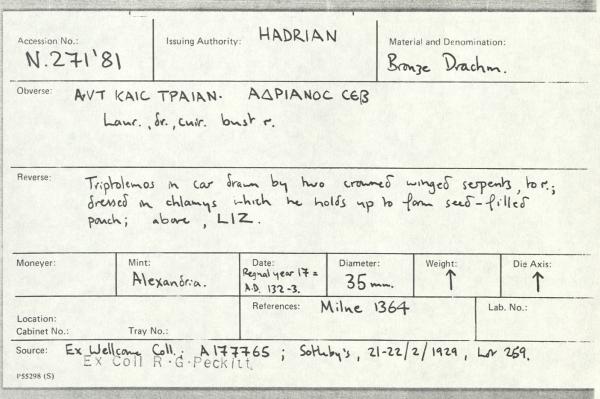 Accession No.: N.271'81
Issuing Authority: HADRIAN
Material and Denomination: Bronze Drachm.
Obverse: AVT KAIC TPAIAN· AΔPIANOC CEB
Laur., dr., cuir. bust r.
Reverse: Triptolemos in car drawn by two crowned winged serpents, to r.;
dressed in chlamys which he holds up to form seed-filled
pouch; above, LIZ.
Moneyer:
Mint: Alexandria.
Date: Regnal year 17 = A.D. 132-3.
Diameter: 35 mm.
Weight: ↑
Die Axis: ↑
Location:
Cabinet No.: Tray No.:
References: Milne 1364
Lab. No.:
Source: Ex Wellcome Coll.; A177765; Sotheby's, 21-22/2/1929, Lot 269.
Ex Coll R·G·Peckitt
P55298 (S)